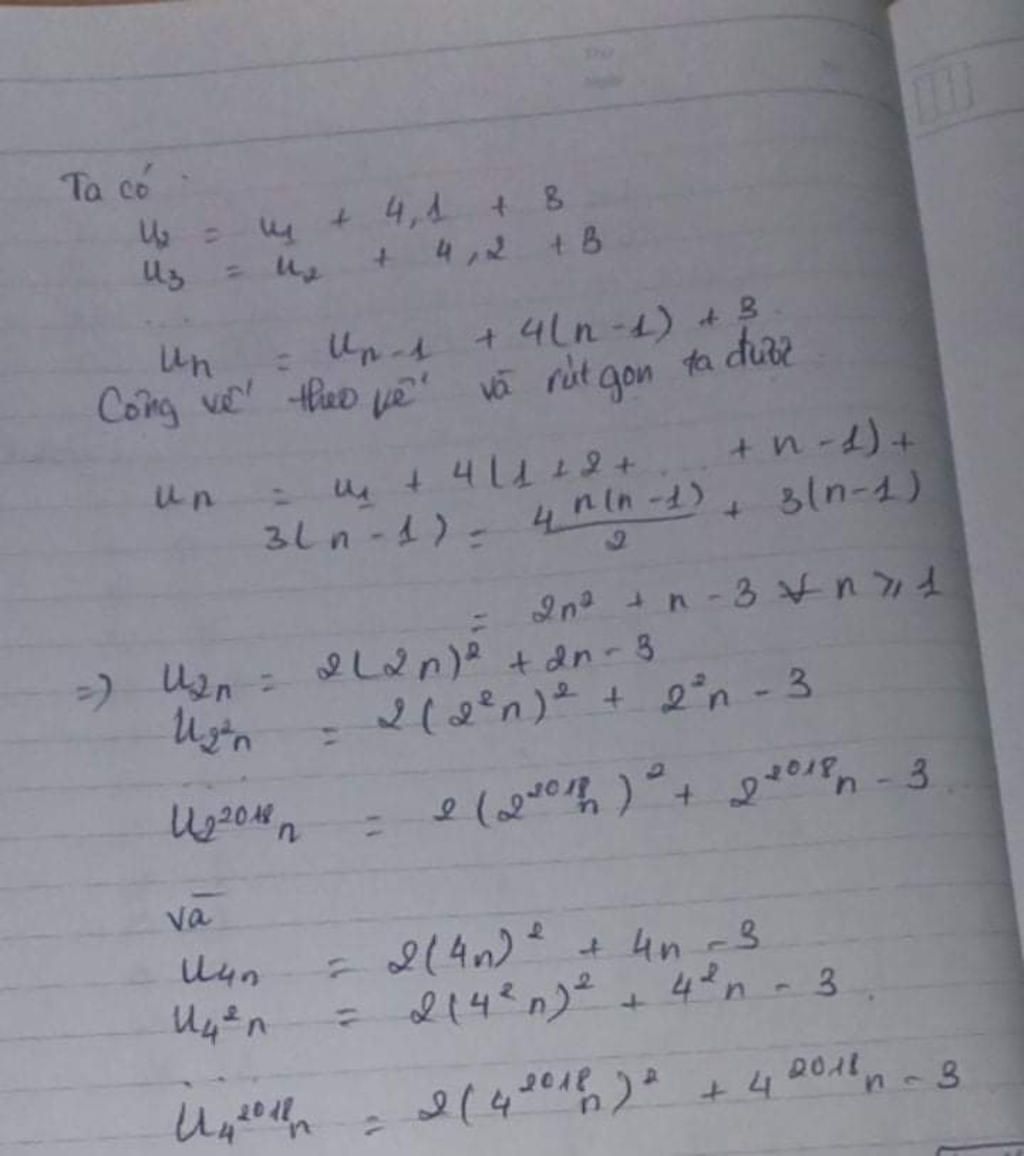 Ta có
u₂ = u₁ + 4,1 + 3
u₃ = u₂ + 4,2 + 3
...
uₙ = uₙ₋₁ + 4(n-1) + 3.
Cộng vế theo vế và rút gọn ta được
uₙ = u₁ + 4(1+2+ ... + n-1) +
3(n-1) = 4 n(n-1)/2 + 3(n-1)
= 2n² + n - 3 ∀ n ⩾ 1
=) U₂ₙ = 2(2n)² + 2n - 3
U_{2²n} = 2(2²n)² + 2²n - 3
...
U_{2²⁰¹⁸n} = 2(2²⁰¹⁸n)² + 2²⁰¹⁸n - 3.
và
U₄ₙ = 2(4n)² + 4n - 3
U_{4²n} = 2(4²n)² + 4²n - 3.
...
U_{4²⁰¹⁸n} = 2(4²⁰¹⁸n)² + 4²⁰¹⁸n - 3